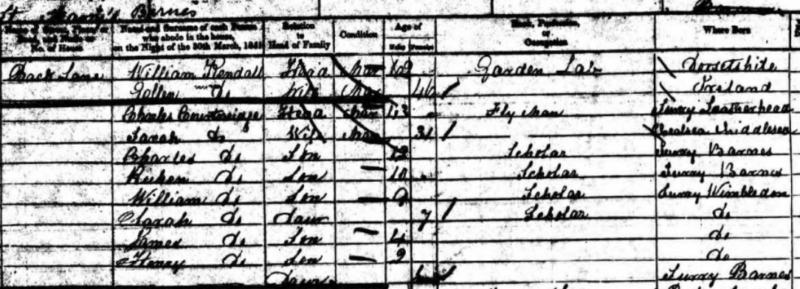 St Mary's Barnes
Name of Street, Place, or Road, and Name or No. of House | Name and Surname of each Person who abode in the house, on the Night of the 30th March, 1851 | Relation to Head of Family | Condition | Age of Males Females | Rank, Profession, or Occupation | Where Born
Back Lane William Kendall Head Mar 69 Garden Lab Dorsetshire
do Wife Mar 46 Ireland
Charles Head Mar 43 Fly man Surry Leatherhead
Sarah do Wife Mar 31 Chelsea Middlesex
Charles do Son 12 Scholar Surry Barnes
Ruben do Son 10 Scholar Surry Barnes
William do Son 9 Scholar Surry Wimbledon
Sarah do Daur 7 Scholar do
James do Son 4 do
Henry do Son 2 do
Daur Surry Barnes